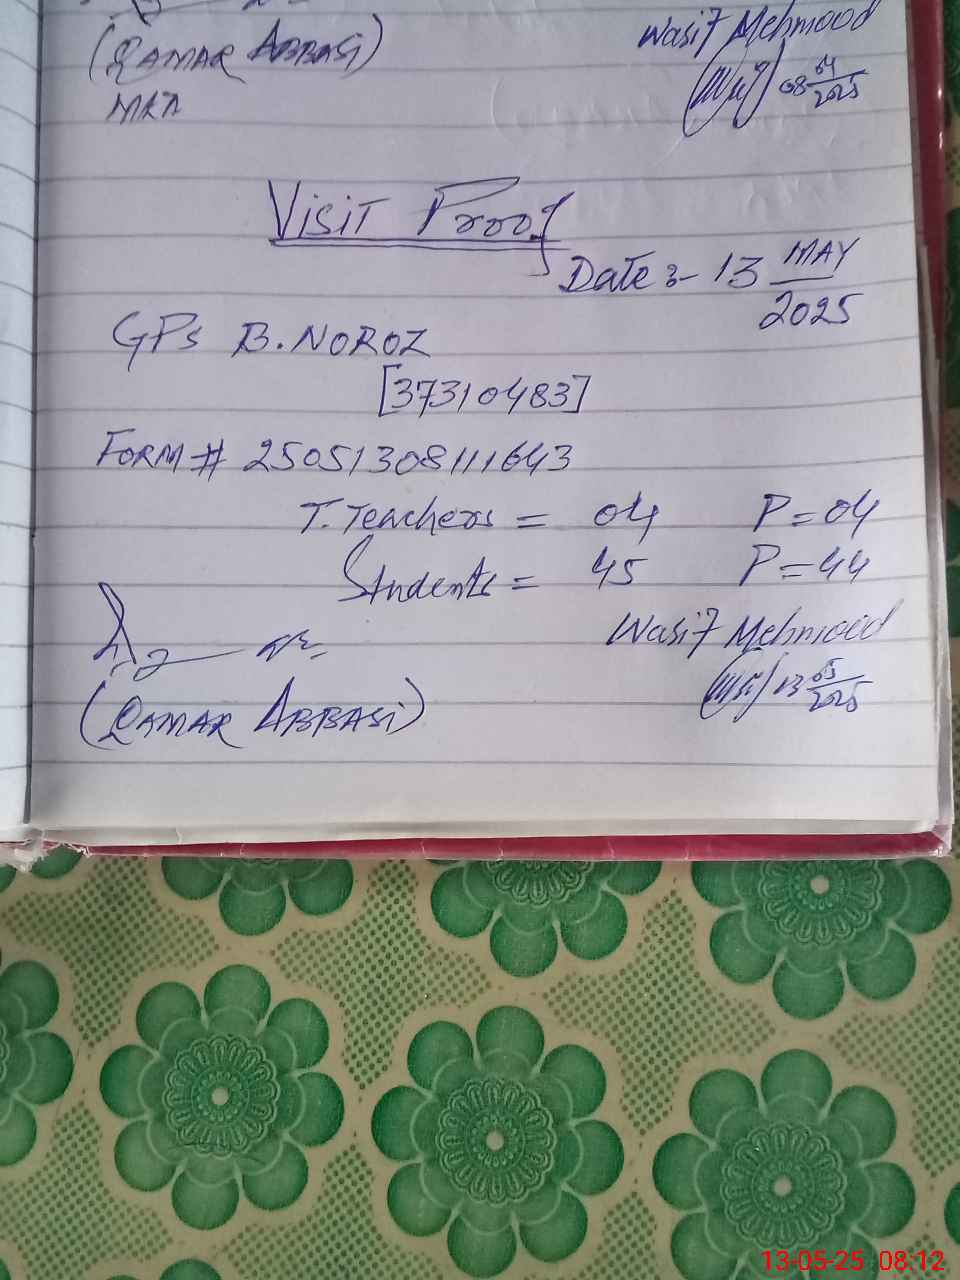 (QAMAR ABBASI)
Wasif Mehmood
08 04/2025
Visit Proof
Date:- 13 MAY
2025
GPS B.NOROZ
[37310483]
FORM# 25051308111643
T.Teachers = 04 P=04
Students = 45 P=44
Wasif Mehmood
13 05/2025
(QAMAR ABBASI)
13-05-25 08:12